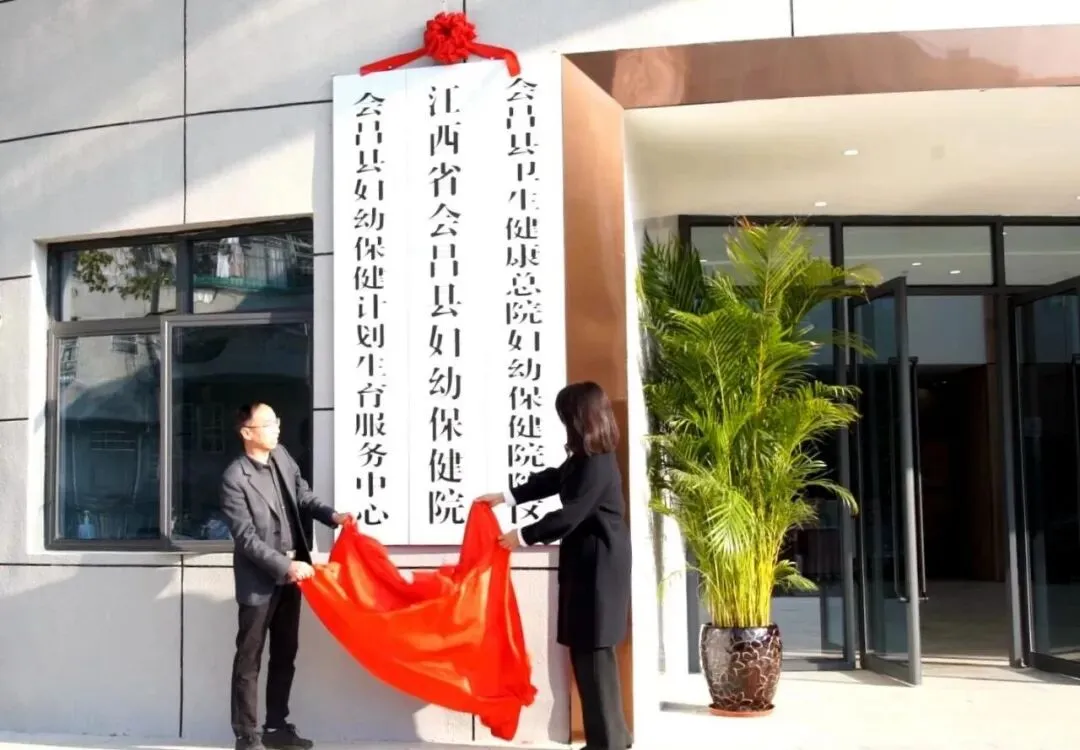 会昌县妇幼保健计划生育服务中心
江西省会昌县妇幼保健院
会昌县卫生健康总院妇幼保健院院区